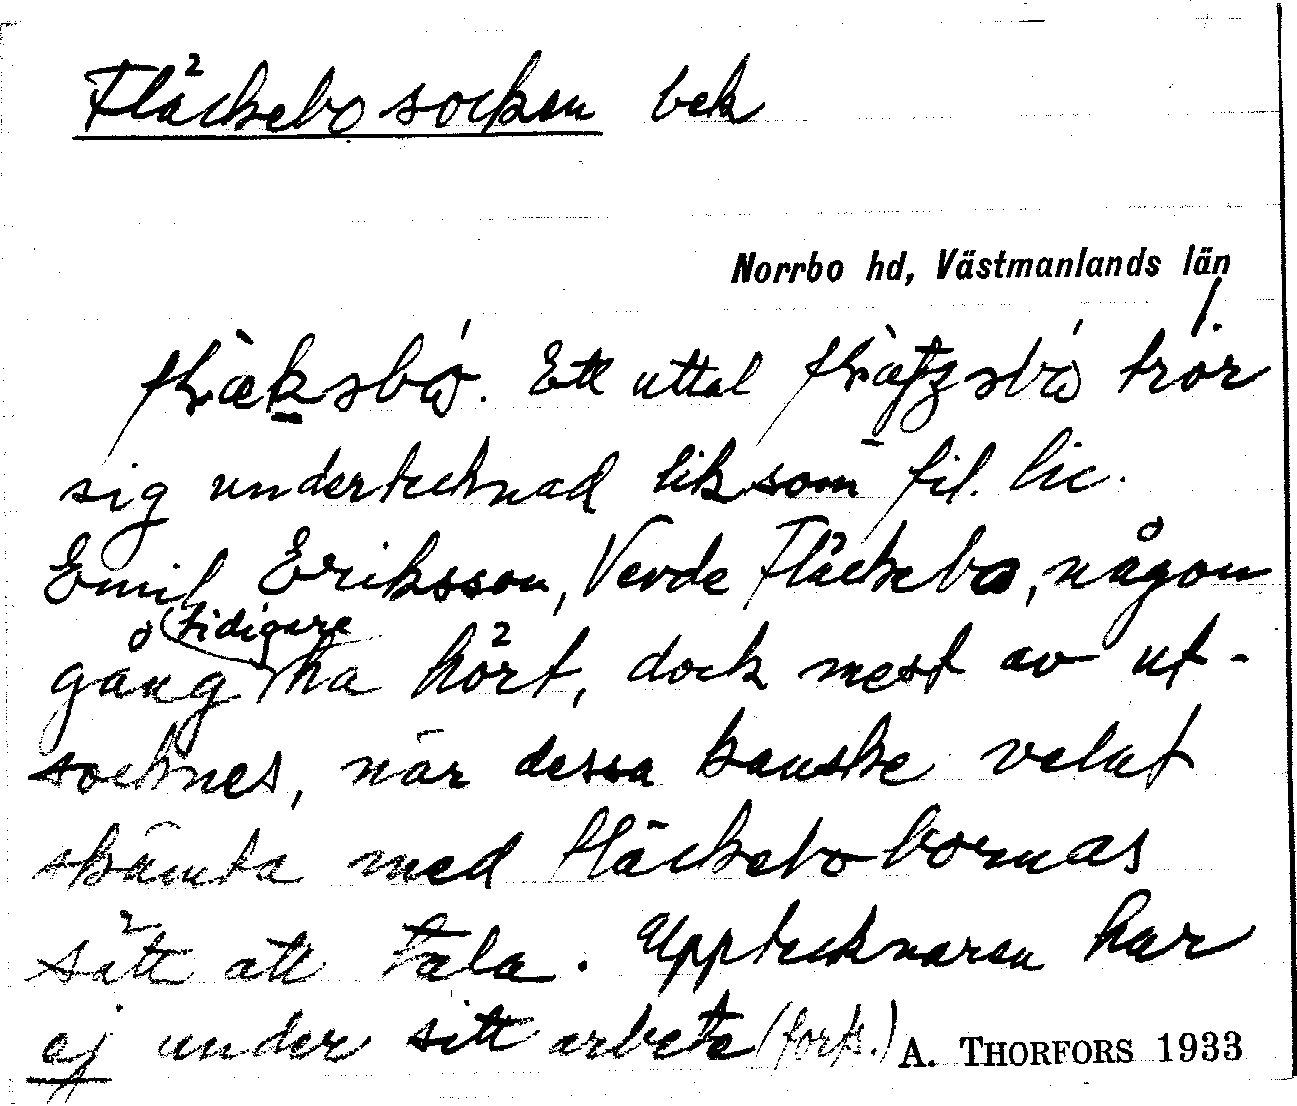 Fläckebo socken bek
Norrbo hd, Västmanlands län
1.
Ett uttal tror
sig undertecknad liksom fil. lic.
Emil Eriksson, Vevde Fläckebo, någon
tidigare
gång ha hört, dock mest av ut-
socknes, när dessa kanske velat
skämta med fläckebobornas
sätt att tala. Upptecknaren har
ej under sitt arbete (forts.) A. THORFORS 1933